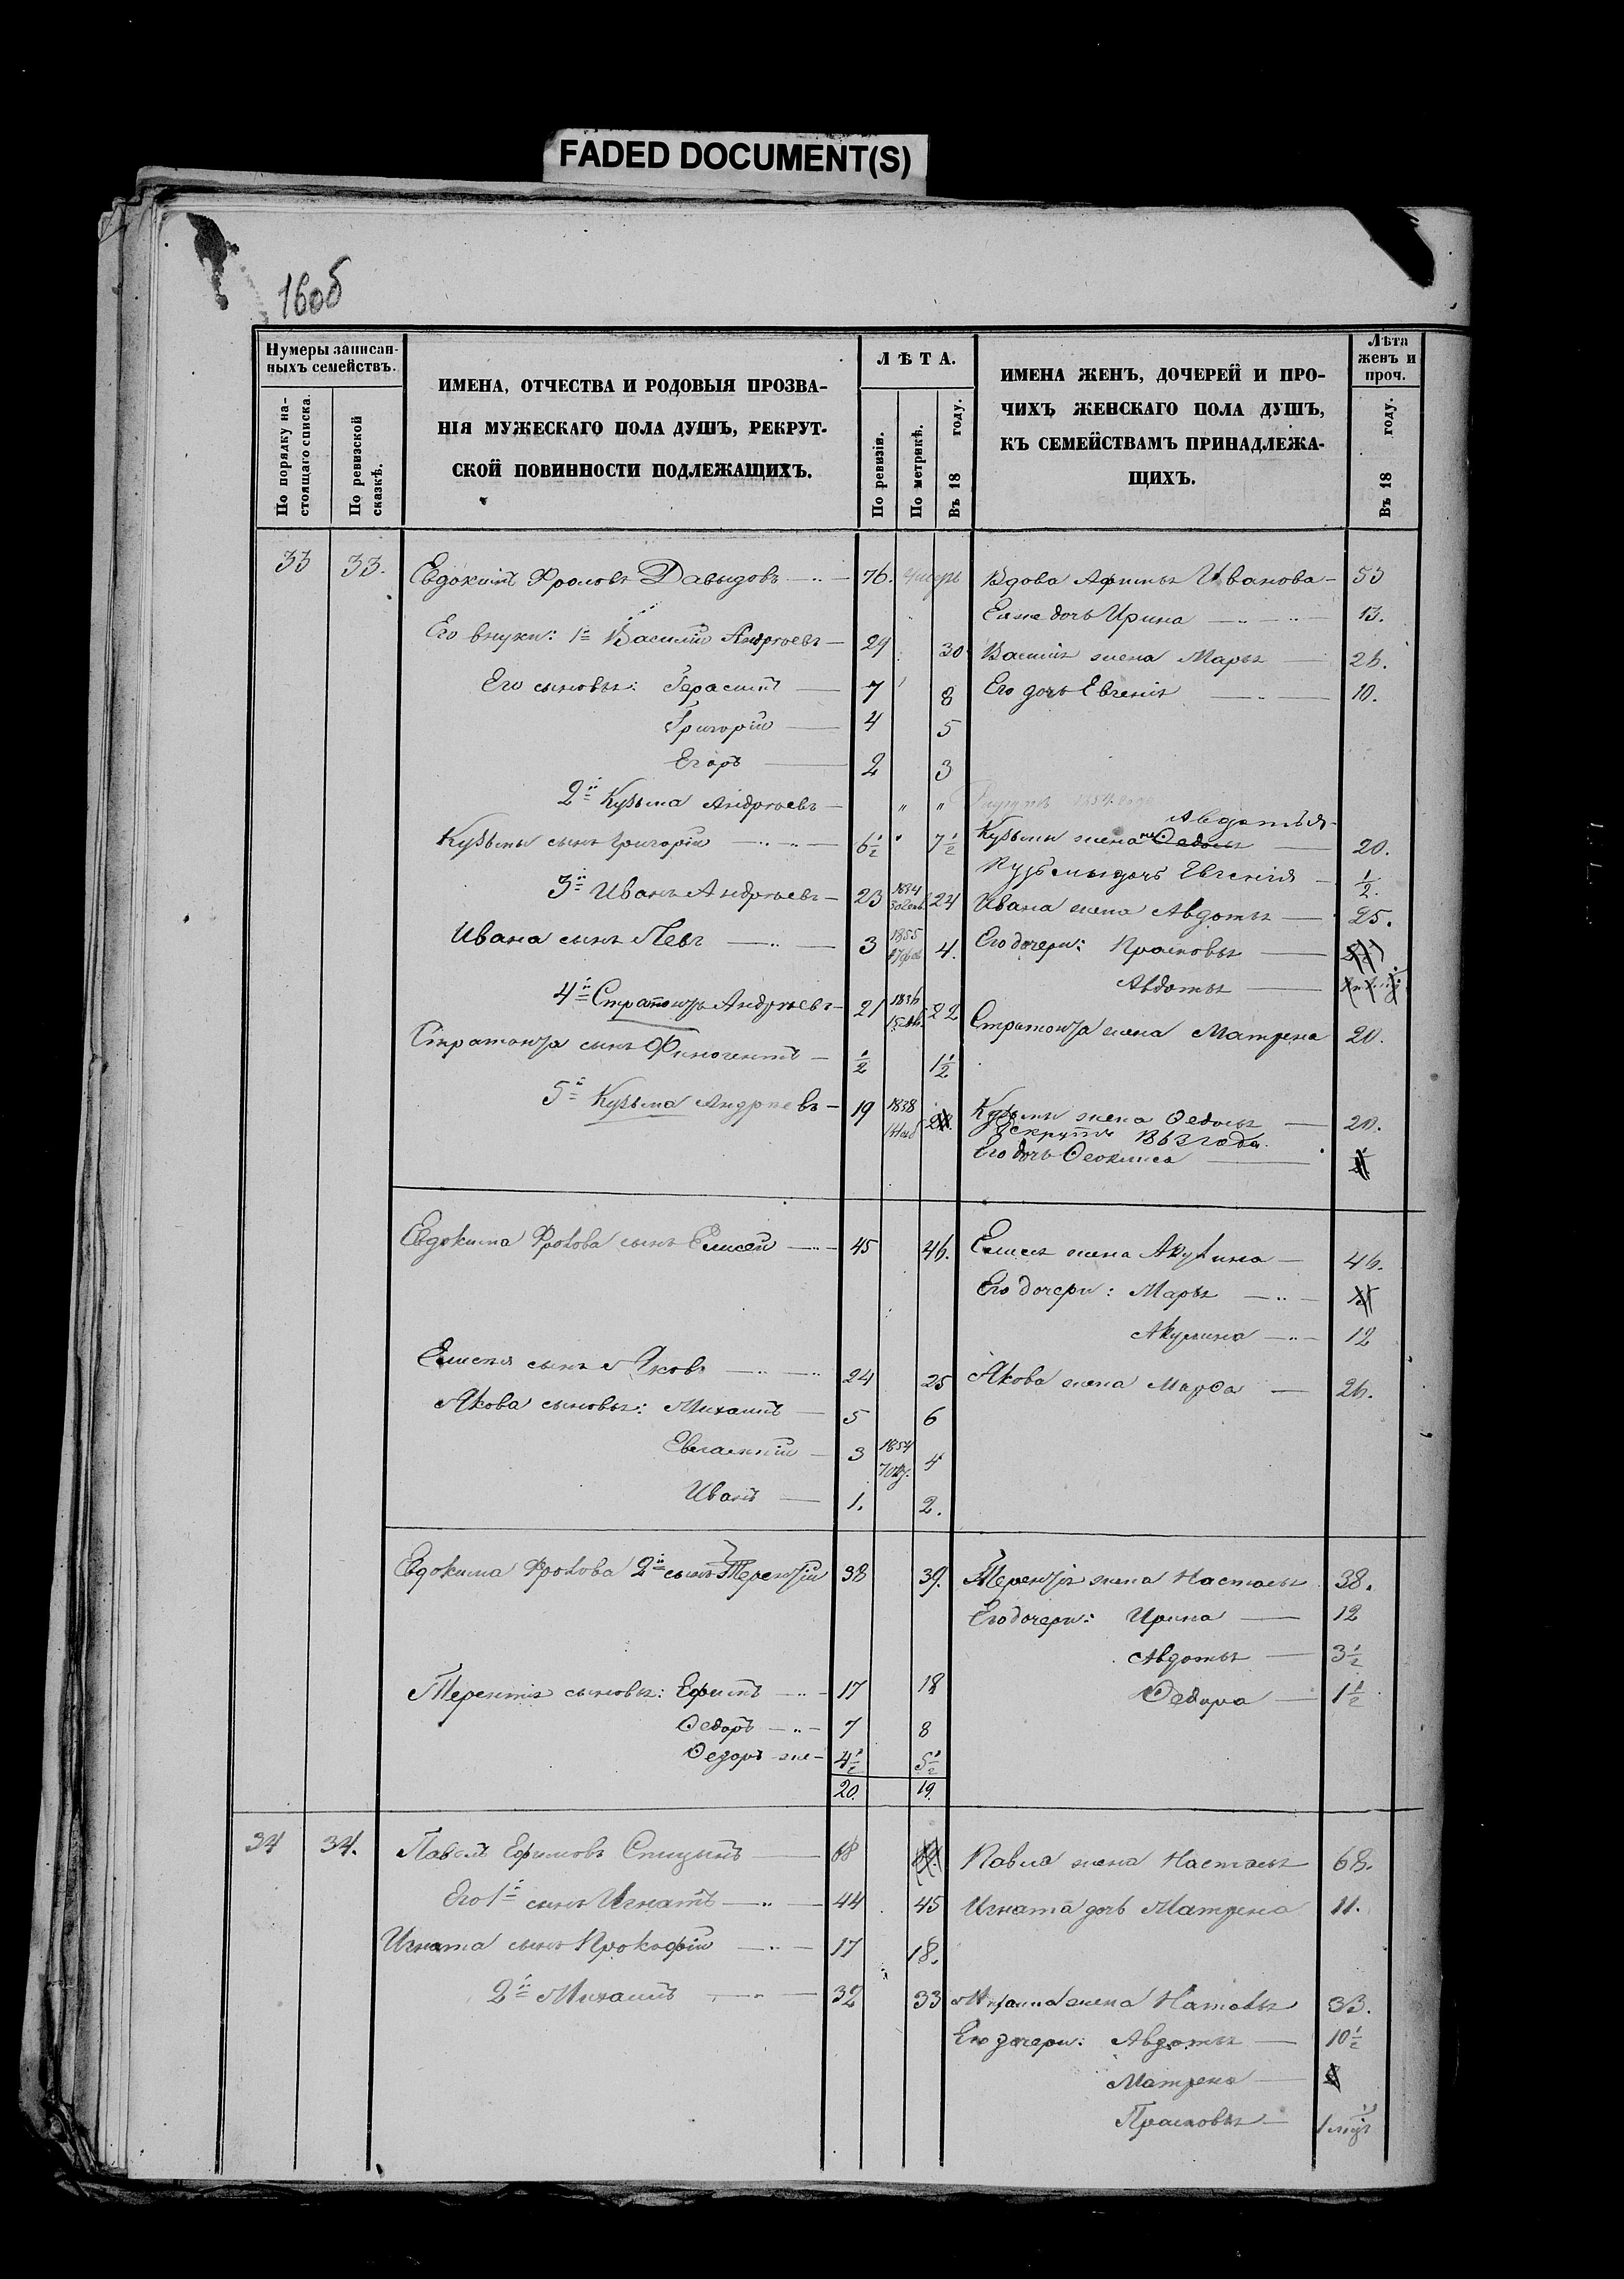 FADED DOCUMENT(S)
160б
Нумеры записан-
ныхъ семействъ.
По порядку на-
стоящаго списка.
По ревизской
сказкѣ.
ИМЕНА, ОТЧЕСТВА И РОДОВЫЯ ПРОЗВА-
НІЯ МУЖЕСКАГО ПОЛА ДУШЪ, РЕКРУТ-
СКОЙ ПОВИННОСТИ ПОДЛЕЖАЩИХЪ.
ЛѢТА.
По ревизіи.
По метрикѣ.
Въ 18 году.
ИМЕНА ЖЕНЪ, ДОЧЕРЕЙ И ПРО-
ЧИХЪ ЖЕНСКАГО ПОЛА ДУШЪ,
КЪ СЕМЕЙСТВАМЪ ПРИНАДЛЕЖА-
ЩИХЪ.
Лѣта
женъ и
проч.
Въ 18 году.
33 33. Евдокимъ Фроловъ Давыдовъ 76. умеръ Вдова Афимья Иванова 53
Ея же дочь Ирина 13.
Его внуки: 1й Василій Андреевъ 29 30 Василія жена Марья 26.
Его сыновья: Герасимъ 7 8 Его дочь Евгенія 10.
Григорій 4 5
Егоръ 2 3
2й Кузьма Андреевъ " "
Авдотья
Кузьмы сынъ Григорій 6½ 7½ Кузьмы жена Федосья 20.
Кузьмы дочь Евгенія ½.
3й Иванъ Андреевъ 23 1834 24 Ивана жена Авдотья 25.
Ивана сынъ Левъ 3 1855 4. Его дочери: Прасковья
Авдотья
4й Стратонъ Андреевъ 21 1836 22 Стратона жена Матрена 20.
Стратона сынъ Финогентъ ½ 1½
5й Кузьма Андреевъ 19 1838 Кузьмы жена Федосья 20.
Рекрутъ 1863 года.
Его дочь Феоклиса
Евдокима Фролова сынъ Елисей 45 46. Елисея жена Акулина 46.
Его дочери: Марья
Акулина 12
Елисея сынъ Яковъ 24 25 Якова жена Марфа 26.
Якова сыновья: Михаилъ 5 6
Евлампій 3 1854 4
Иванъ 1. 2.
Евдокима Фролова 2й сынъ Терентій 38 39. Терентія жена Настасья 38.
Его дочери: Ирина 12
Авдотья 3½
Терентія сыновья: Ефимъ 17 18 Федора 1½
Федоръ 7 8
Федоръ же 4½ 5½
20. 19.
34 34. Павелъ Ефимовъ Спицынъ 68 Павла жена Настасья 68.
Его 1й сынъ Игнатъ 44 45 Игната дочь Матрена 11.
Игната сынъ Прокофій 17 18.
2й Михаилъ 32 33 Михаила жена Наталья 33.
Его дочери: Авдотья 10½
Матрена
Прасковья